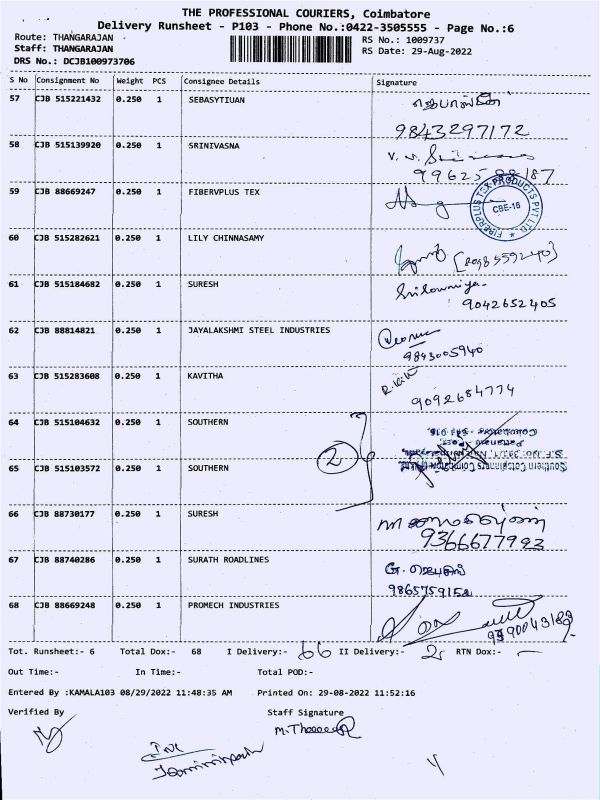 THE PROFESSIONAL COURIERS, Coimbatore
Delivery Runsheet - P103 - Phone No.:0422-3505555 - Page No.:6
Route: THANGARAJAN
Staff: THANGARAJAN
DRS No.: DCJB100973706
RS No.: 1009737
RS Date: 29-Aug-2022
S No Consignment No Weight PCS Consignee Details Signature
57 CJB 515221432 0.250 1 SEBASYTIUAN
9843297172
58 CJB 515139920 0.250 1 SRINIVASNA
59 CJB 88669247 0.250 1 FIBERVPLUS TEX
FIBERPLUS TEX PRODUCTS PVT LTD
CBE-16
60 CJB 515282621 0.250 1 LILY CHINNASAMY
61 CJB 515184682 0.250 1 SURESH
9042652405
62 CJB 88814821 0.250 1 JAYALAKSHMI STEEL INDUSTRIES
9843005940
63 CJB 515283608 0.250 1 KAVITHA
9092684774
64 CJB 515104632 0.250 1 SOUTHERN
2
65 CJB 515103572 0.250 1 SOUTHERN
66 CJB 88730177 0.250 1 SURESH
9366677923
67 CJB 88740286 0.250 1 SURATH ROADLINES
9865759152
68 CJB 88669248 0.250 1 PROMECH INDUSTRIES
Tot. Runsheet:- 6 Total Dox:- 68 I Delivery:- 66 II Delivery:- 2 RTN Dox:- -
Out Time:- In Time:- Total POD:-
Entered By :KAMALA103 08/29/2022 11:48:35 AM Printed On: 29-08-2022 11:52:16
Verified By Staff Signature